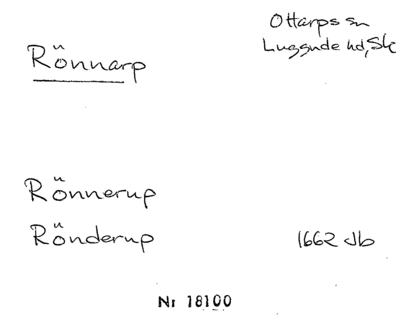 Rönnarp
Ottarps sn
Luggude hd, Sk
Rönnerup
Rönderup 1662 Jb
Nr 18100